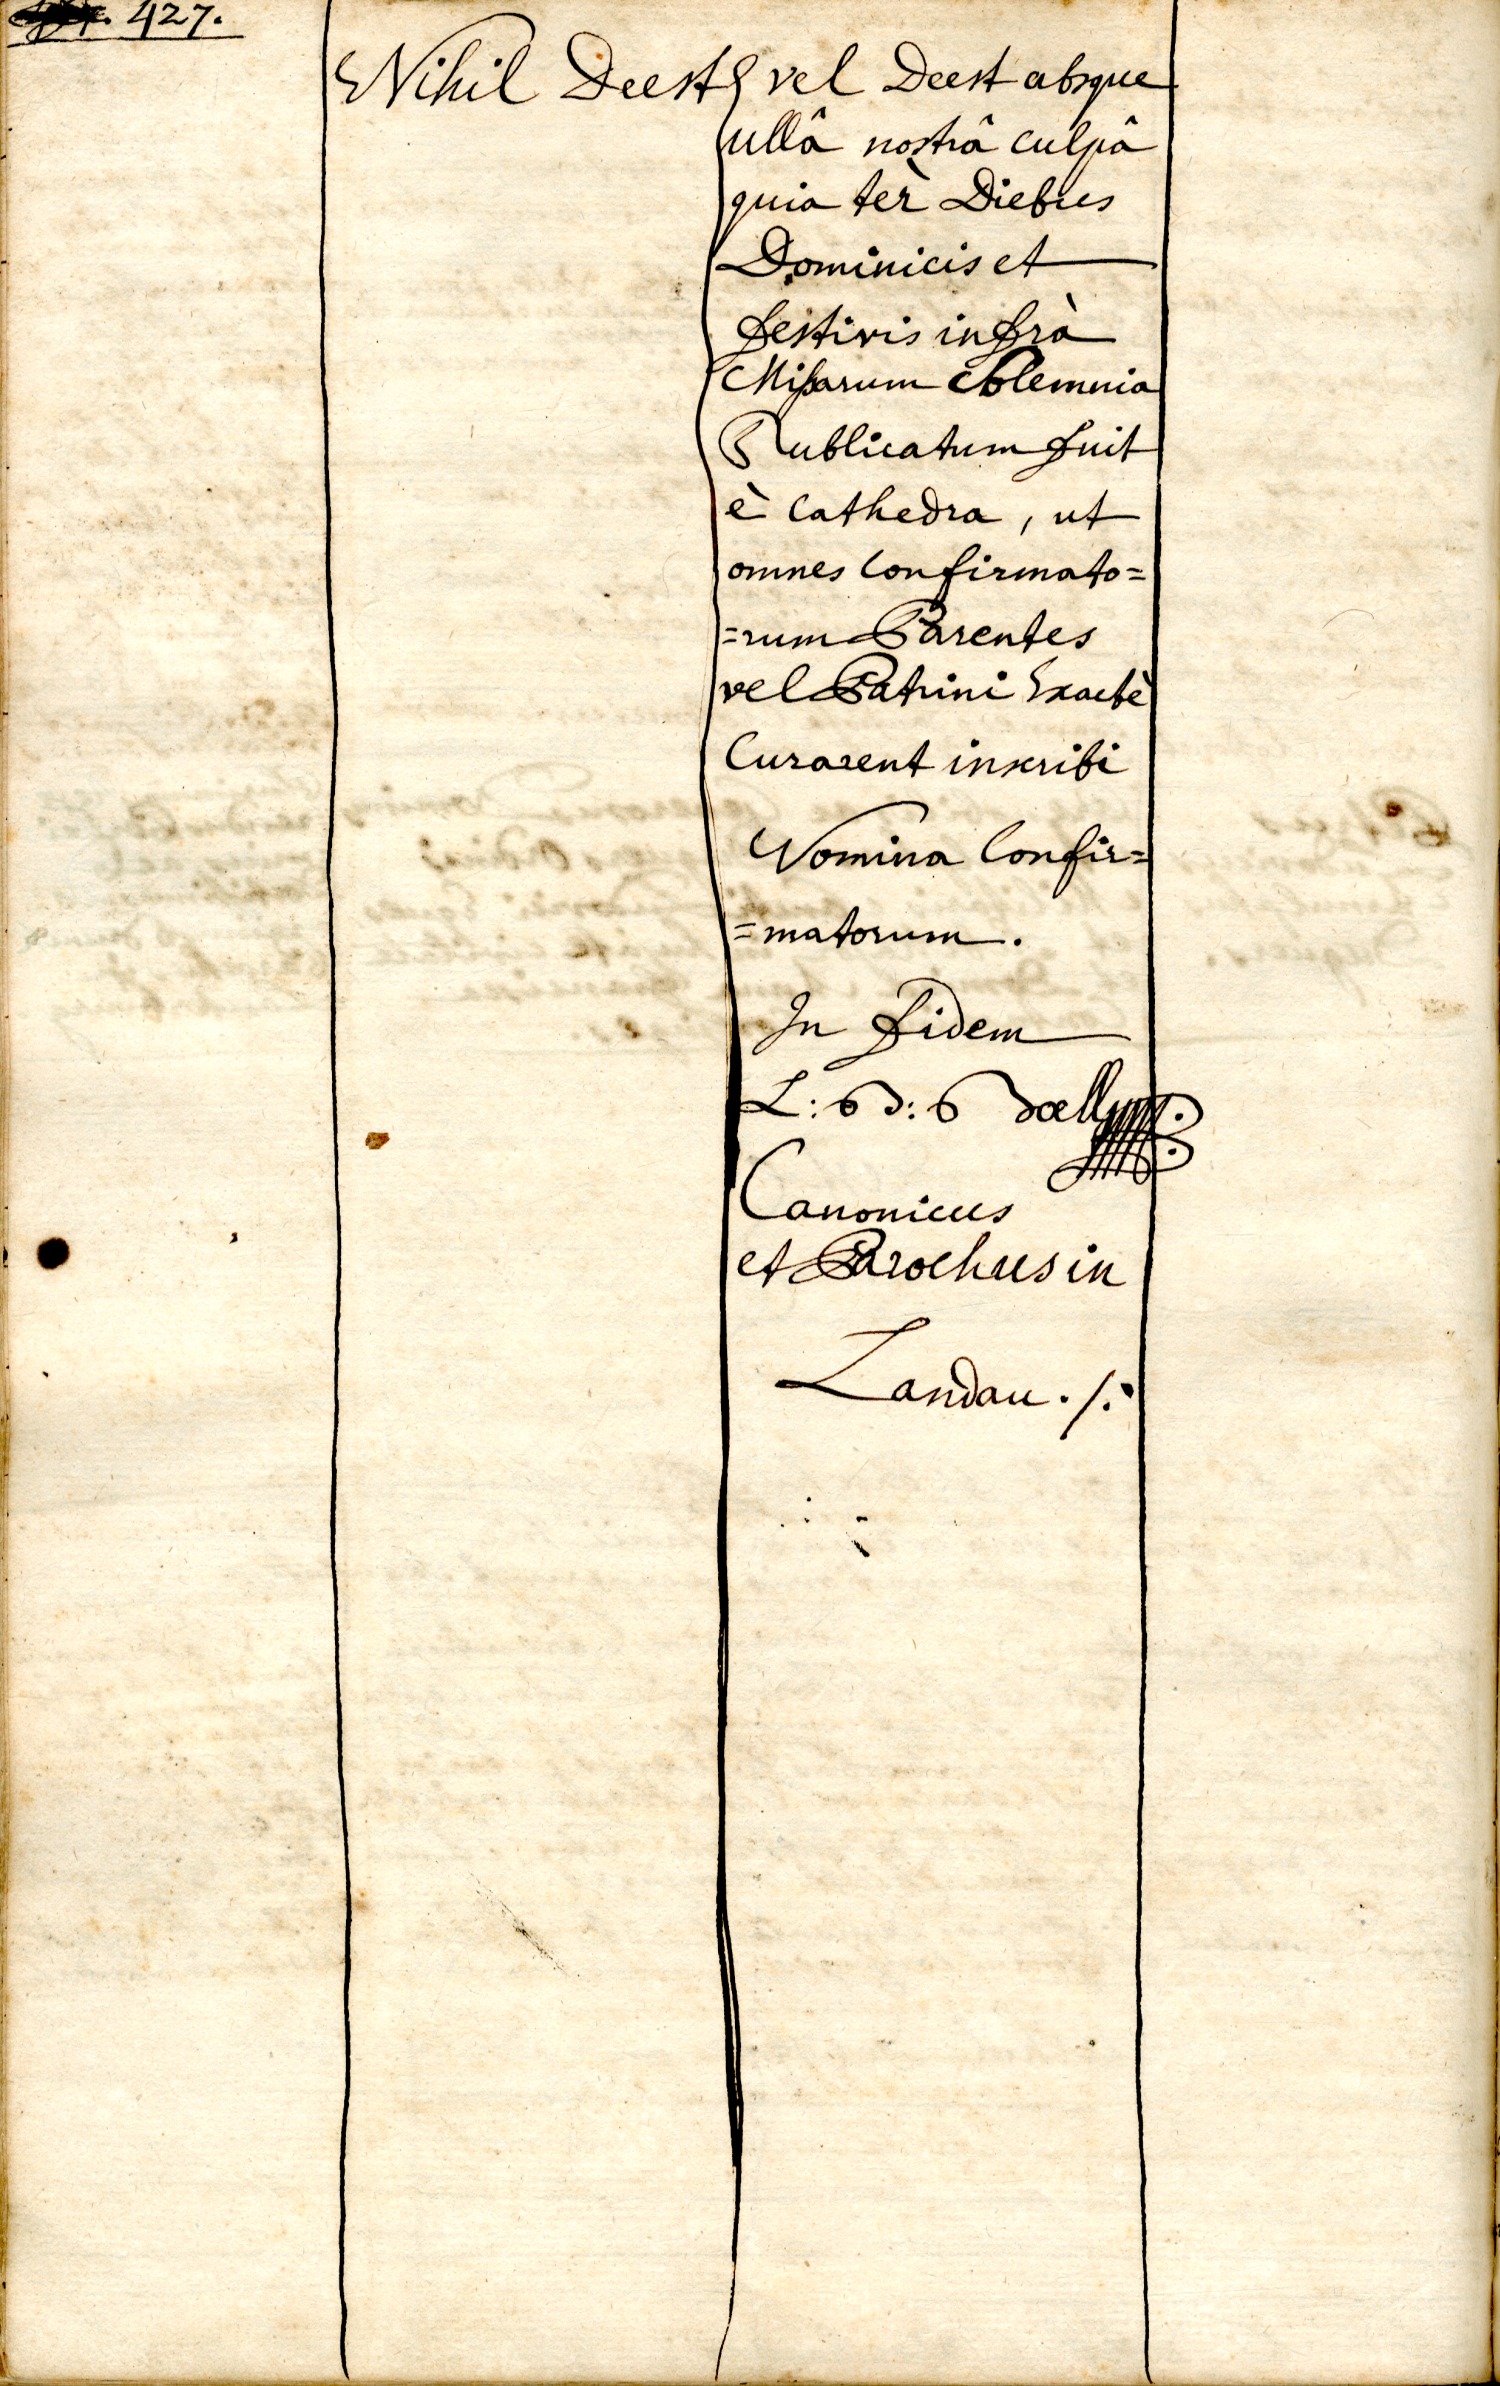 427.
Nihil Deest vel Deest absque
ullâ nostrâ culpâ
quia tèr Diebus
Dominicis et
festivis infrà
Missarum solemnia
Publicatum fuit
è Cathedra, ut
omnes Confirmato=
=rum Parentes
vel Patrini Exactè
Curarent inscribi
Nomina Confir=
=matorum.
In fidem
Canonicus
et Parochus in
Landau ./.